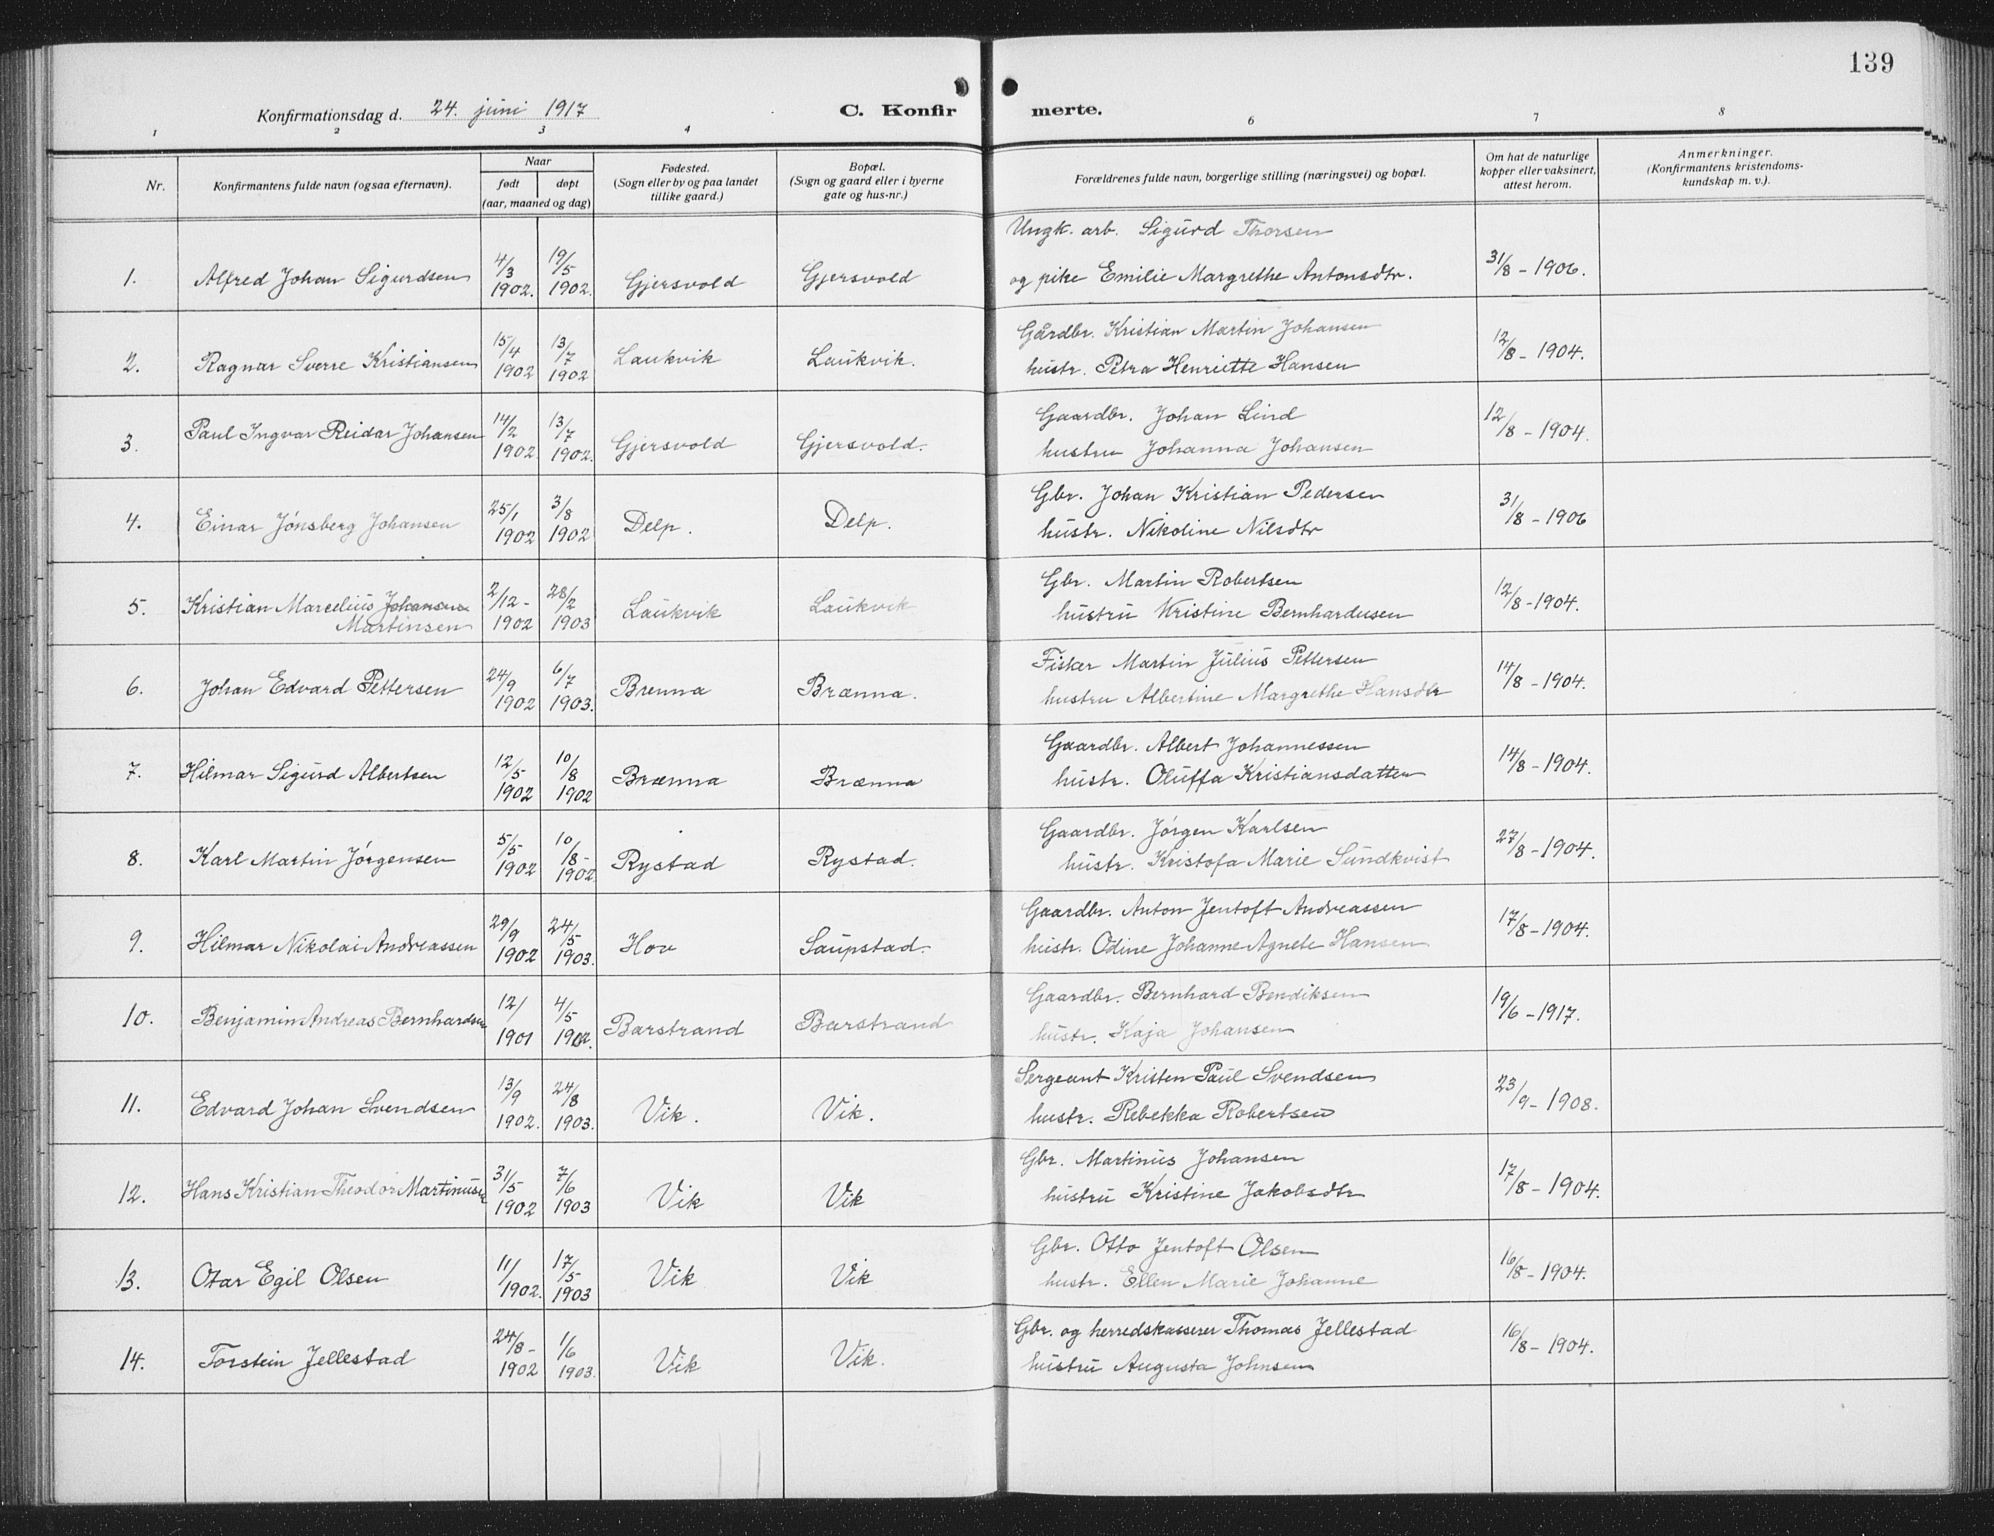 139
Konfirmationsdag d. 24. juni 1917
C. Konfirmerte.
1 2 3 4 6 7 8
Nr.
Konfirmantens fulde navn (ogsaa efternavn).
Naar
født døpt
(aar, maaned og dag)
Fødested.
(Sogn eller by og paa landet
tillike gaard.)
Bopæl.
(Sogn og gaard eller i byerne
gate og hus-nr.)
Forældrenes fulde navn, borgerlige stilling (næringsvei) og bopæl.
Om hat de naturlige
kopper eller vaksinert,
attest herom.
Anmerkninger.
(Konfirmantens kristendoms-
kundskap m. v.).
1. Alfred Johan Sigurdsen 4/3 1902. 19/5 1902. Gjersvold Gjersvold Ungk. arb. Sigurd Thorsen
og pike Emilie Margrethe Antonsdtr. 31/8 - 1906.
2. Ragnar Sverre Kristiansen 15/4 1902 13/7 1902 Laukvik Laukvik. Gårdbr. Kristian Martin Johansen
hustr. Petra Henriette Hansen 12/8 - 1904.
3. Paul Ingvar Reidar Johansen 14/2 1902 13/7 1902. Gjersvold Gjersvold. Gaardbr. Johan Lind
hustru Johanna Johansen 12/8 - 1904.
4. Einar Jónsberg Johansen 25/1 1902 3/8 1902 Delp. Delp. Gbr. Johan Kristian Pedersen
hustr. Nikoline Nilsdtr 31/8 - 1906
5. Kristian Marcelius Johansen
Martinsen 2/12 - 1902 28/2 1903 Laukvik Laukvik Gbr. Martin Robertsen
hustru Kristine Bernhardusen 12/8 - 1904.
6. Johan Edvard Pettersen 24/9 1902 6/7 1903. Brenna Brænna. Fisker Martin Julius Pettersen
hustru Albertine Margrethe Hansdtr 14/8 - 1904.
7. Hilmar Sigurd Albertsen 12/5 1902 10/8 1902 Brænna Brænna Gaardbr. Albert Johannessen
hustr. Oluffa Kristiansdatter 14/8 - 1904.
8. Karl Martin Jørgensen 5/5 1902 10/8 - 1902. Rystad Rystad. Gaardbr. Jørgen Karlsen
hustr. Kristofa Marie Sundkvist 27/8 - 1904.
9. Hilmar Nikolai Andreassen 29/9 1902 24/5 1903. Hov Saupstad. Gaardbr. Anton Jentoft Andreassen
hustr. Odine Johanne Agnete Hansen 17/8 - 1904.
10. Benjamin Andreas Bernhardsen 12/1 1901 4/5 1902. Barstrand Barstrand Gaardbr. Bernhard Bendiksen
hustr. Kaja Johansen 19/6 - 1917.
11. Edvard Johan Svendsen 13/9 1902. 24/8 1903. Vik. Vik. Sergeant Kristen Paul Svendsen
hustr. Rebekka Robertsen 23/9 - 1908.
12. Hans Kristian Theodor Martinusen 31/5 1902 7/6 1903 Vik Vik Gbr. Martinus Johansen
hustru Kristine Jakobsdtr 17/8 - 1904.
13. Otar Egil Olsen 11/1 1902. 17/5 1903 Vik Vik Gbr. Otto Jentoft Olsen
hustr. Ellen Marie Johanne 16/8 - 1904.
14. Torstein Jellestad 24/8 - 1902 1/6 1903. Vik Vik. Gbr. og herredskasserer Thomas Jellestad
hustru Augusta Johnsen 16/8 - 1904.